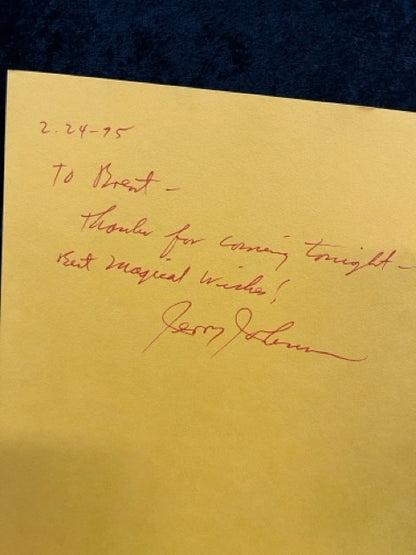 2-24-95
To Brent -
Thanks for coming tonight -
Best Magical Wishes!
Jerry Johnson